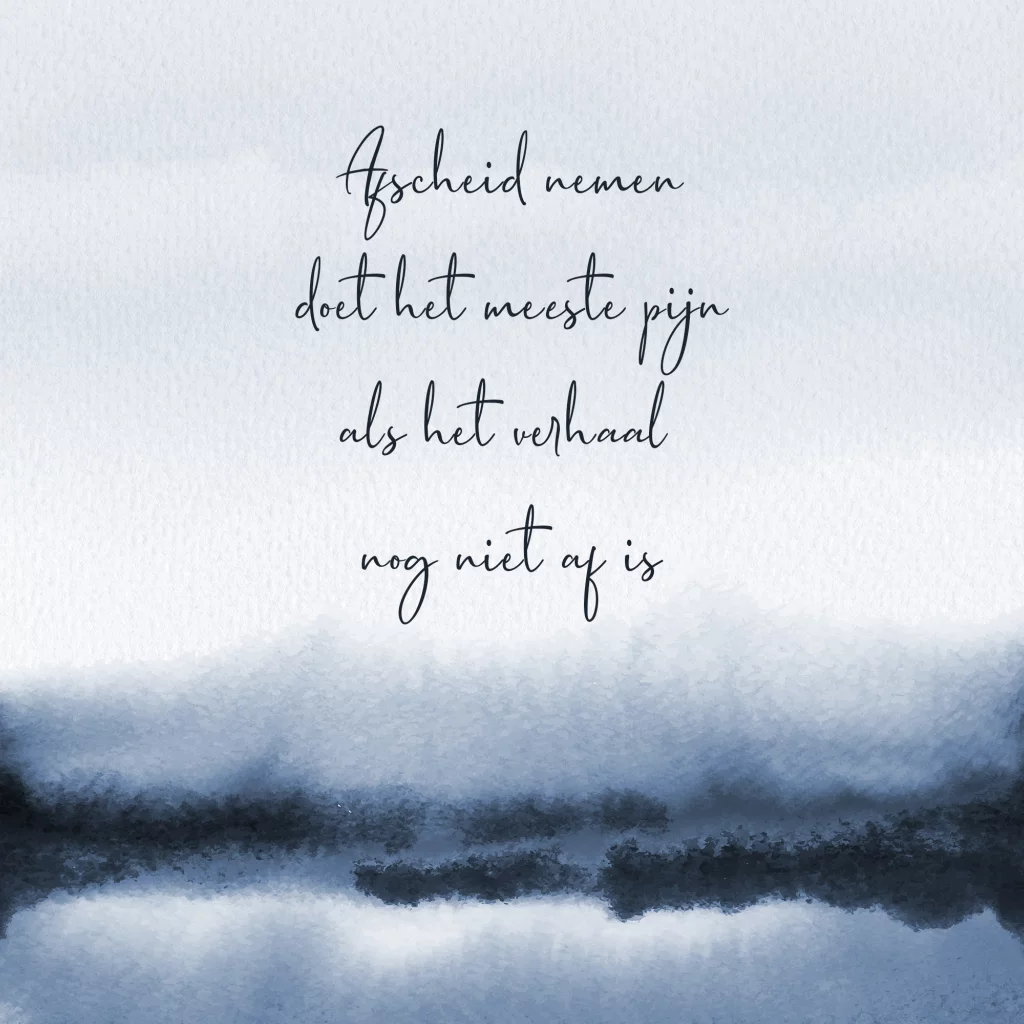 Afscheid nemen
doet het meeste pijn
als het verhaal
nog niet af is